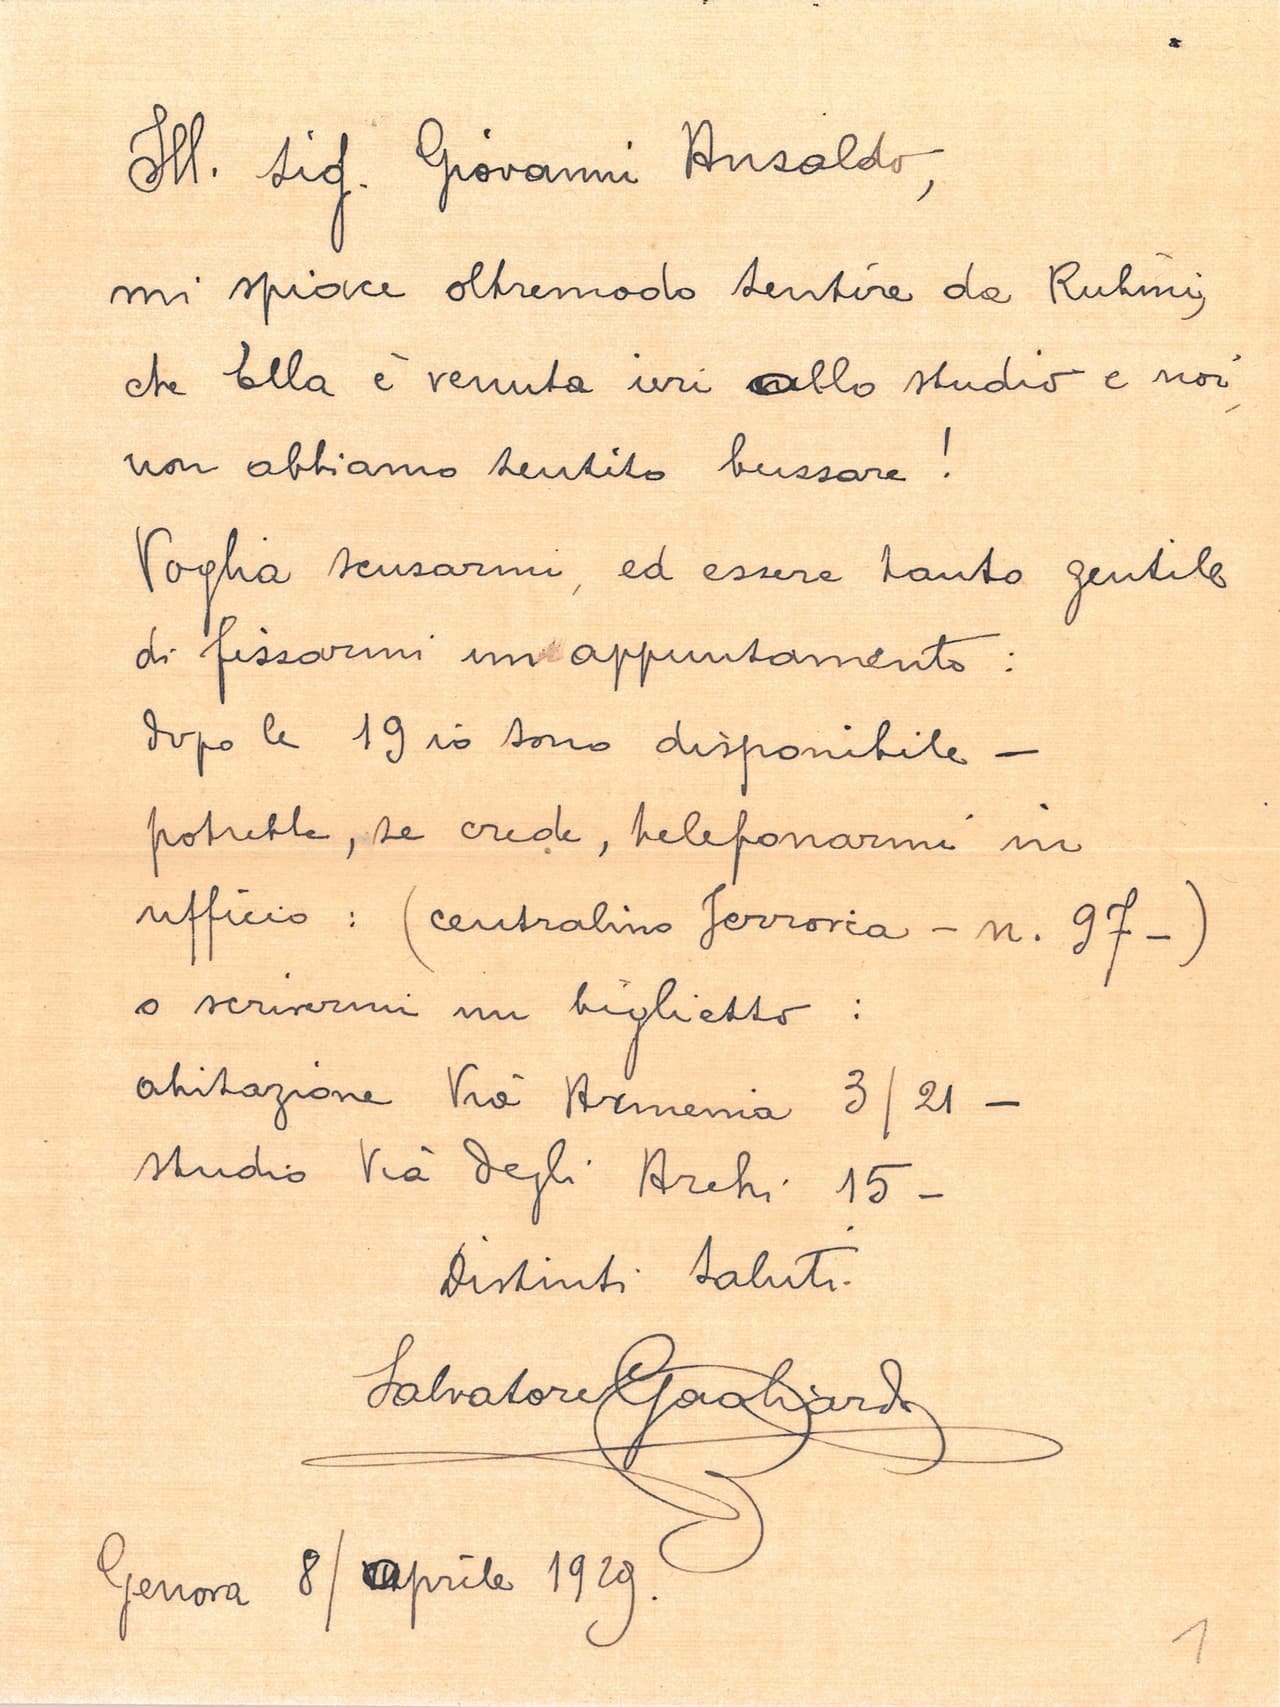 Ill. sig. Giovanni Ansaldo,
mi spiace oltremodo sentire da Rubini,
che Ella è venuta ieri allo studio e noi,
non abbiamo sentito bussare!
Voglia scusarmi, ed essere tanto gentile
di fissarmi un appuntamento:
dopo le 19 io sono disponibile –
potrebbe, se crede, telefonarmi in
ufficio: (centralino Ferrovia – n. 97 –)
o scrivermi un biglietto:
abitazione Via Armenia 3/21 –
studio Via degli Archi 15 –
Distinti saluti.
Salvatore Gagliardo
Genova 8/ aprile 1929.
1